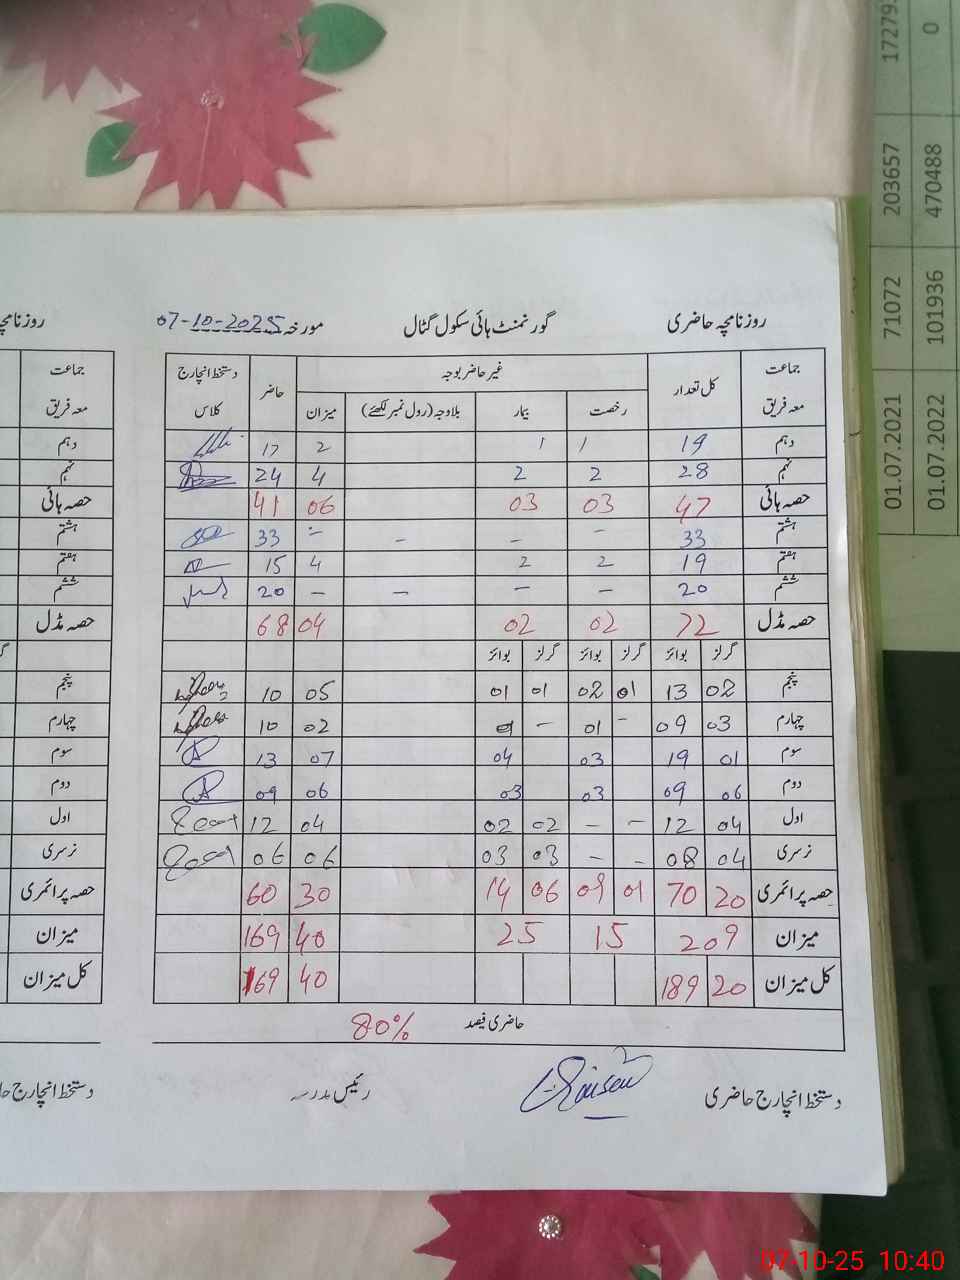 روزنامچہ حاضری گورنمنٹ ہائی سکول گٹال مورخہ 07-10-2025
جماعت معہ فریق کل تعداد غیر حاضر بوجہ حاضر دستخط انچارج کلاس
رخصت بیمار بلاوجہ (رول نمبر لکھئے) میزان
دہم 19 1 1 2 17
نہم 28 2 2 4 24
حصہ ہائی 47 03 03 06 41
ہشتم 33 - - - - 33
ہفتم 19 2 2 4 15
ششم 20 - - - - 20
حصہ مڈل 72 02 02 04 68
گرلز بوائز گرلز بوائز گرلز بوائز
پنجم 02 13 01 02 01 01 05 10
چہارم 03 09 - 01 - 01 02 10
سوم 01 19 03 04 07 13
دوم 06 09 03 03 06 09
اول 04 12 - - 02 02 04 12
نرسری 04 08 - - 03 03 06 06
حصہ پرائمری 20 70 01 09 06 14 30 60
میزان 209 15 25 40 169
کل میزان 20 189 40 169
حاضری فیصد 80%
دستخط انچارج حاضری رئیس مدرسہ
روزنامچہ
جماعت
معہ فریق
دہم
نہم
حصہ ہائی
ہشتم
ہفتم
ششم
حصہ مڈل
پنجم
چہارم
سوم
دوم
اول
نرسری
حصہ پرائمری
میزان
کل میزان
دستخط انچارج
01.07.2021 71072 203657 17279
01.07.2022 101936 470488 0
07-10-25 10:40